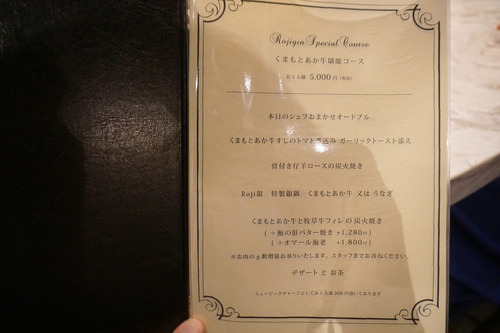 Rojigin Special Course
くまもとあか牛堪能コース
お1人様 5,000円（税抜）
本日のシェフおまかせオードブル
くまもとあか牛すじのトマト煮込み ガーリックトースト添え
骨付き仔羊ロースの炭火焼き
Roji銀 特製銀鍋 くまもとあか牛 又は うなぎ
くまもとあか牛と牧草牛フィレの炭火焼き
（＋鮑の肝バター焼き +1,280円）
（＋オマール海老 +1,800円）
※お肉のg数増量お承りいたします。スタッフまでお尋ねください。
デザート と お茶
ミュージックチャージとしてお1人様500円頂いております